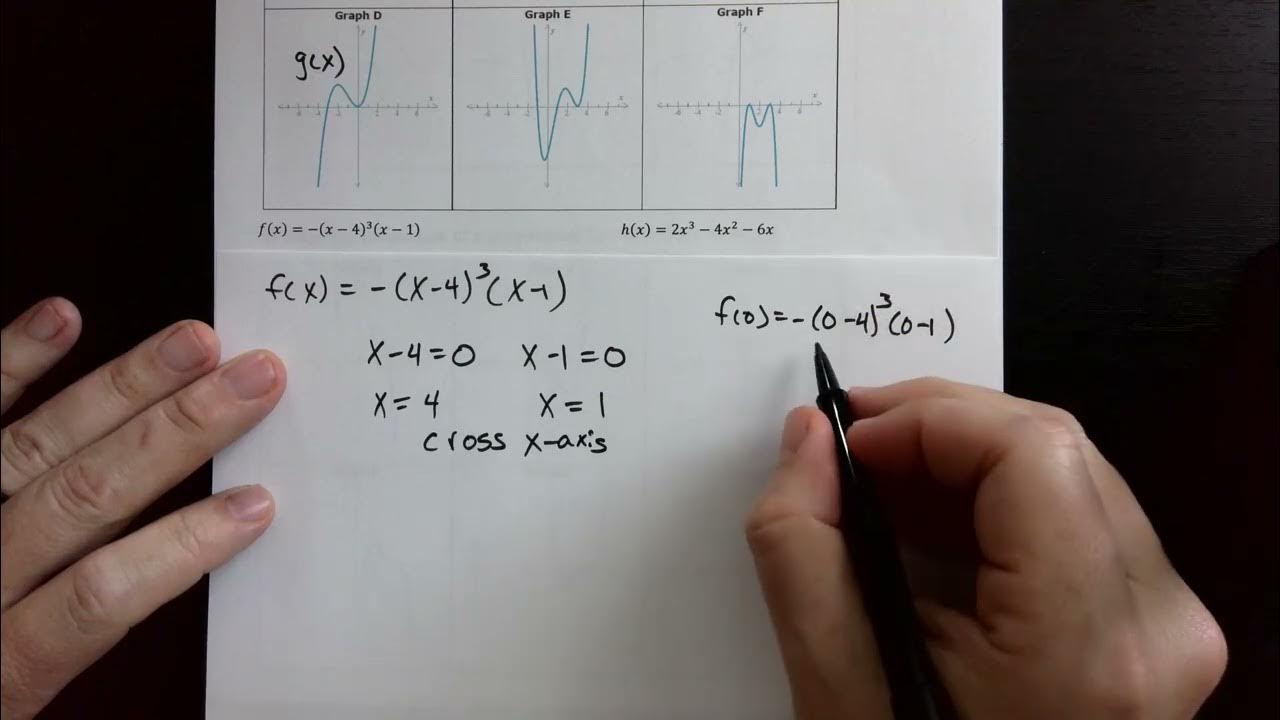 Graph D Graph E Graph F
g(x)
y y y
x x x
f(x) = −(x − 4)³(x − 1) h(x) = 2x³ − 4x² − 6x
f(x) = -(x-4)³(x-1)
f(0)=-(0-4)³(0-1)
x-4=0 x-1=0
x=4 x=1
cross x-axis